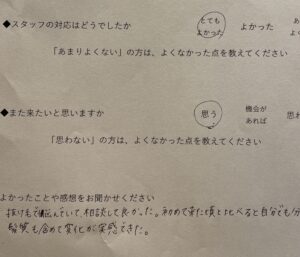 ◆スタッフの対応はどうでしたか
とても
よかった
よかった
あ
よ
「あまりよくない」の方は、よくなかった点を教えてください
◆また来たいと思いますか
思う
機会が
あれば
思わ
「思わない」の方は、よくなかった点を教えてください
よかったことや感想をお聞かせください
抜け毛で悩んでいて、相談して良かった。初めて来た頃と比べると自分でも分
髪質も含めて変化が実感できた。